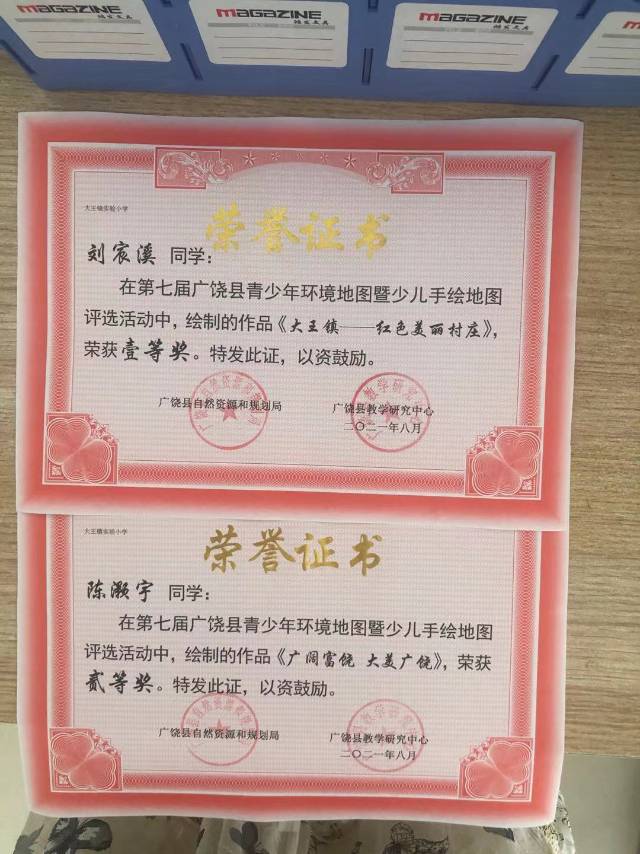 MAGAZINE
MAGAZINE
MAGAZINE
MAGAZINE
大王镇实验小学
荣誉证书
刘宸溪 同学：
在第七届广饶县青少年环境地图暨少儿手绘地图
评选活动中，绘制的作品《大王镇——红色美丽村庄》，
荣获壹等奖。特发此证，以资鼓励。
广饶县自然资源和规划局
广饶县教学研究中心
二〇二一年八月
大王镇实验小学
荣誉证书
陈灏宇 同学：
在第七届广饶县青少年环境地图暨少儿手绘地图
评选活动中，绘制的作品《广阔富饶 大美广饶》，荣获
贰等奖。特发此证，以资鼓励。
广饶县自然资源和规划局
广饶县教学研究中心
二〇二一年八月